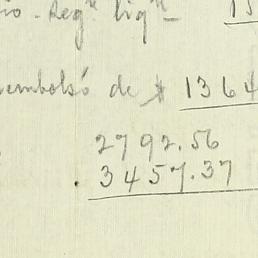 io. Regn liqn 15
eembolsó de $ 1364
2792.56
3457.37